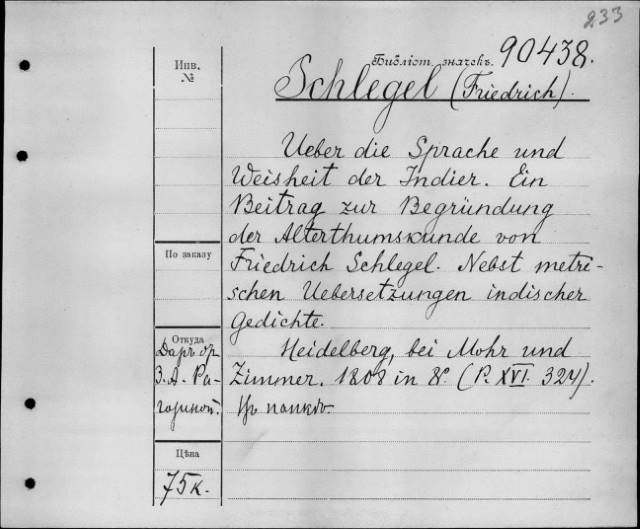 233
Библіот. значекъ. 90438.
Инв.
№
Schlegel (Friedrich).
Ueber die Sprache und
Weisheit der Indier. Ein
Beitrag zur Begründung
der Alterthumskunde von
Friedrich Schlegel. Nebst metri-
schen Uebersetzungen indischer
Gedichte.
Heidelberg, bei Mohr und
Zimmer. 1808 in 8º. (P. XVI. 324).
По заказу
Откуда
Даръ
З. А. Ра-
Цѣна
75 к.